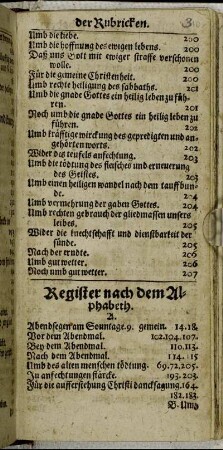 der Rubricken.
Umb die liebe. 200
Umb die hoffnung des ewigen lebens. 200
Daß uns Gott mit ewiger straffe verschonen
wolle. 200
Für die gemeine Christenheit. 200
Umb rechte heiligung des sabbaths. 201
Umb die gnade Gottes ein heilig leben zu füh-
ren. 201
Noch umb die gnade Gottes ein heilig leben zu
führen. 202
Umb kräfftige wirckung des gepredigten und an-
gehörten worts. 202
Wider des teufels anfechtung. 203
Umb die tödtung des fleisches und erneuerung
des Geistes. 203
Umb einen heiligen wandel nach dem tauffbun-
de. 204
Umb vermehrung der gaben Gottes. 204
Umb rechten gebrauch der gliedmassen unsers
leibes. 205
Wider die knechtschafft und dienstbarkeit der
sünde. 205
Nach der erndte. 206
Umb gut wetter. 206
Noch umb gut wetter. 207
Register nach dem Al-
phabeth.
A.
Abendsegen am Sonntage. 9. gemein. 14. 18.
Vor dem Abendmal. 102. 104. 107.
Bey dem Abendmal. 110. 113.
Nach dem Abendmal. 114. 15
Umb des alten menschen tödtung. 69. 72. 205.
In anfechtungen stärcke. 193. 203.
Für die aufferstehung Christi dancksagung. 164.
182. 183.
Umb